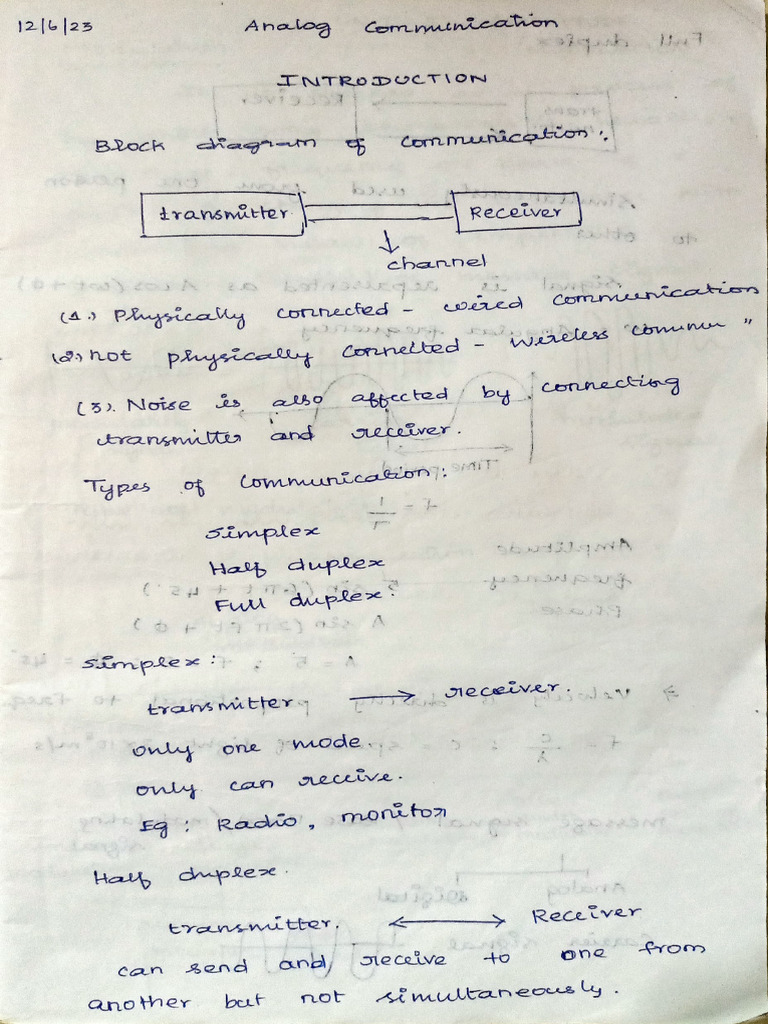 12/6/23 Analog Communication
INTRODUCTION
Block diagram of communication:
transmitter Receiver
channel
(1.) Physically connected - wired communication
(2.) not physically connected - wireless commu "
(3). Noise is also affected by connecting
transmitter and receiver.
Types of communication:
Simplex
Half duplex
Full duplex.
Simplex:
transmitter → receiver.
only one mode.
only can receive.
Eg: Radio, monitor
Half duplex.
transmitter. ↔ Receiver
can send and receive to one from
another but not simultaneously.